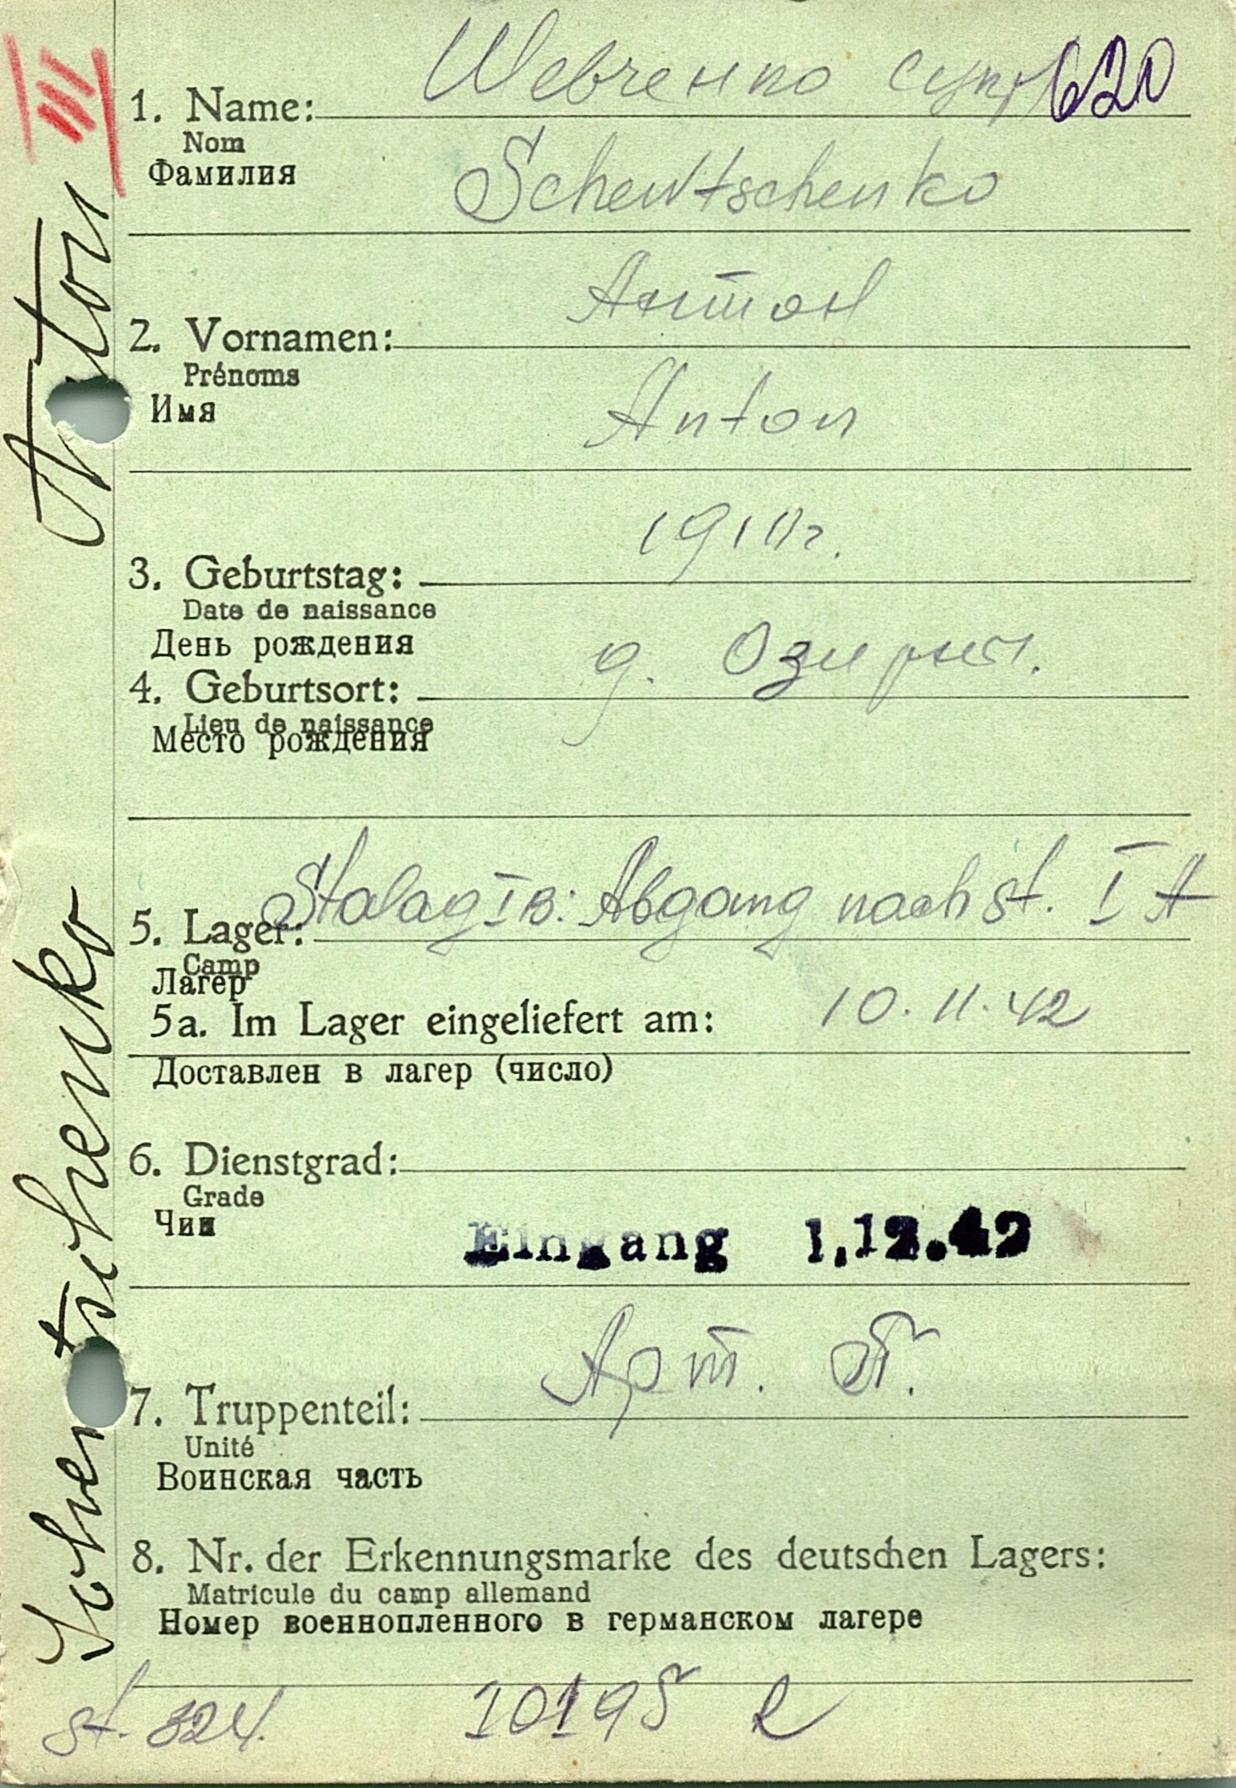 III
Schewtschenko Anton
Шевченко 620
1. Name:
Nom
Фамилия
Schewtschenko
Антон
2. Vornamen:
Prénoms
Имя
Anton
3. Geburtstag:
Date de naissance
День рождения
д. Озирич.
4. Geburtsort:
Lieu de naissance
Место рождения
Stalag IB: Abgang nach St. I A
5. Lager:
Camp
Лагер
5a. Im Lager eingeliefert am: 10.11.42
Доставлен в лагер (число)
6. Dienstgrad:
Grade
Чин
Eingang 1.12.42
Арт. П.
7. Truppenteil:
Unité
Воинская часть
8. Nr. der Erkennungsmarke des deutschen Lagers:
Matricule du camp allemand
Номер военнопленного в германском лагере
St. 324. 10195